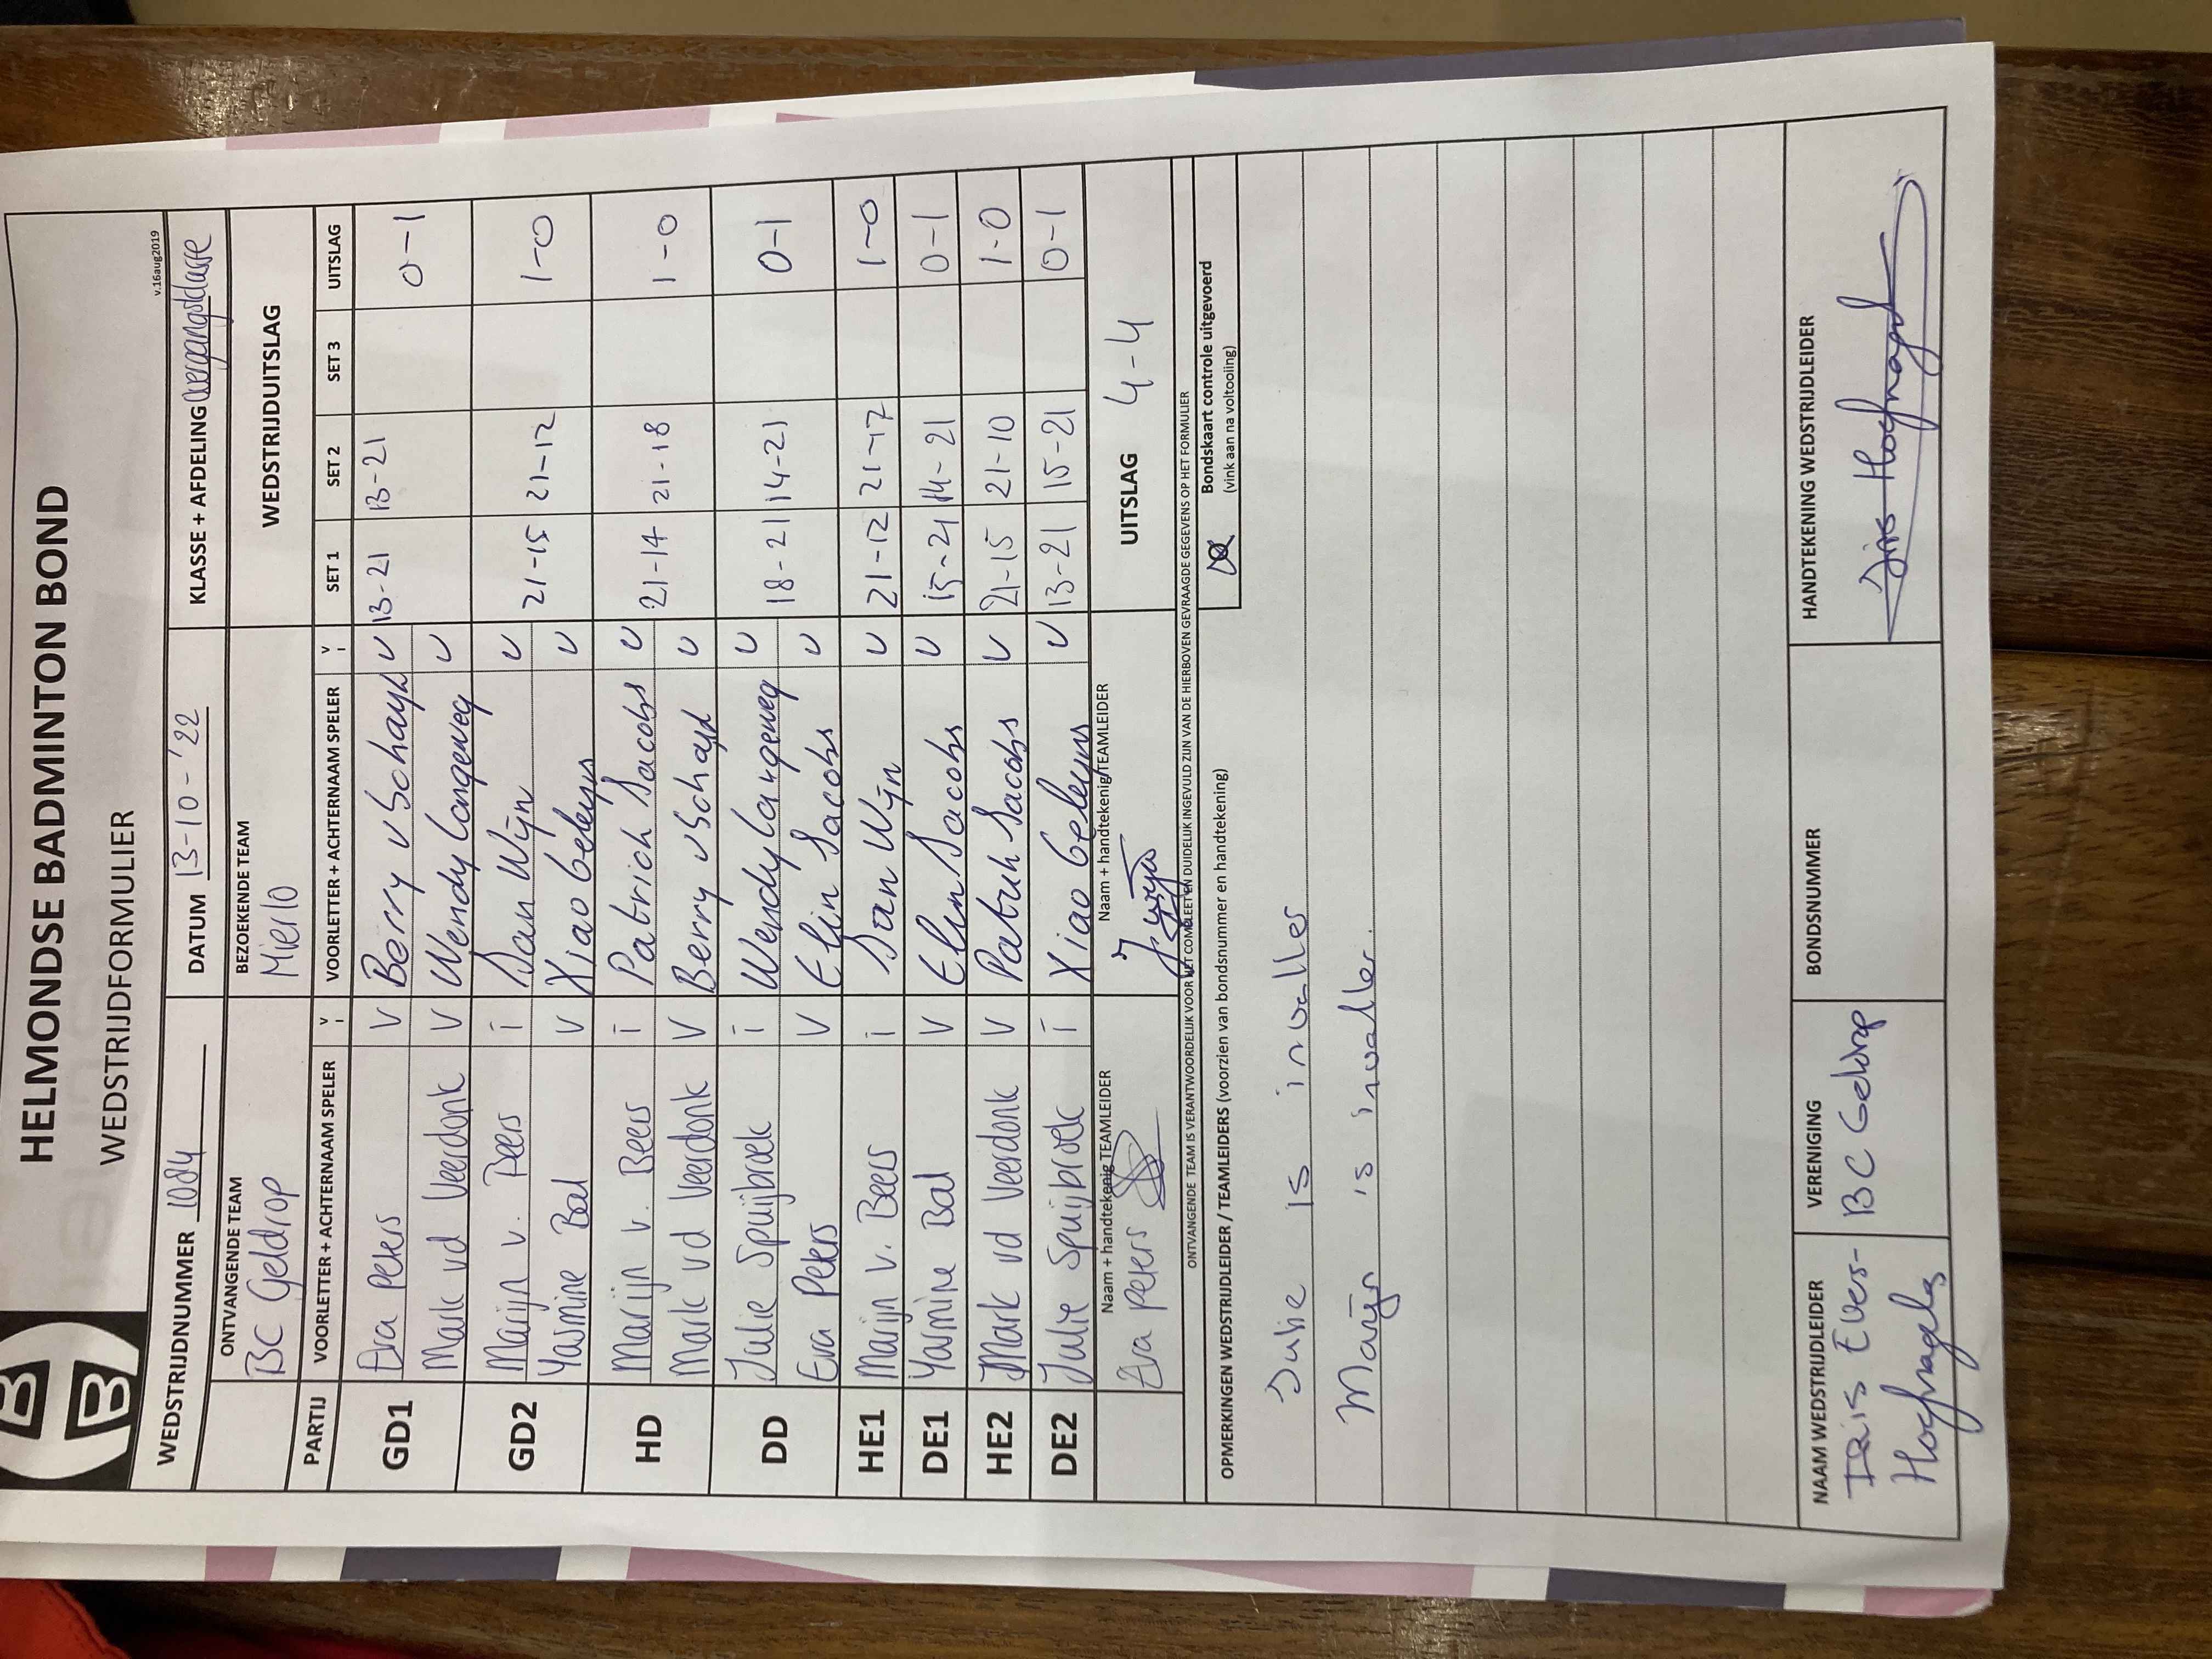 HELMONDSE BADMINTON BOND
WEDSTRIJDFORMULIER
v.16aug2019
WEDSTRIJDNUMMER 1084 DATUM 13-10-'22 KLASSE + AFDELING Overgangsklasse
ONTVANGENDE TEAM BEZOEKENDE TEAM WEDSTRIJDUITSLAG
BC Geldrop Mierlo
PARTIJ VOORLETTER + ACHTERNAAM SPELER V I VOORLETTER + ACHTERNAAM SPELER V I SET 1 SET 2 SET 3 UITSLAG
GD1 Eva Peters V Berry v Schayk V 13-21 13-21 0-1
Mark vd Veerdonk V Wendy Langeweg V
GD2 Marijn v. Beers i Daan Wijn V 21-15 21-12 1-0
Yasmine Bal V Xiao Geleijns V
HD Marijn v. Beers i Patrick Jacobs V 21-14 21-18 1-0
Mark vd Veerdonk V Berry v Schayk V
DD Julie Spuijbroek i Wendy Langeweg V 18-21 14-21 0-1
Eva Peters V Elin Jacobs V
HE1 Marijn v. Beers i Daan Wijn V 21-12 21-17 1-0
DE1 Yasmine Bal V Elin Jacobs V 15-21 14-21 0-1
HE2 Mark vd Veerdonk V Patrick Jacobs V 21-15 21-10 1-0
DE2 Julie Spuijbroek i Xiao Geleijns V 13-21 15-21 0-1
Naam + handtekenig TEAMLEIDER Naam + handtekenig TEAMLEIDER UITSLAG 4-4
Eva Peters
ONTVANGENDE TEAM IS VERANTWOORDELIJK VOOR HET COMPLEET EN DUIDELIJK INGEVULD ZIJN VAN DE HIERBOVEN GEVRAAGDE GEGEVENS OP HET FORMULIER
OPMERKINGEN WEDSTRIJDLEIDER / TEAMLEIDERS (voorzien van bondsnummer en handtekening) Bondskaart controle uitgevoerd
(vink aan na voltooiing)
Julie is invaller
Marijn is invaller.
NAAM WEDSTRIJDLEIDER VERENIGING BONDSNUMMER HANDTEKENING WEDSTRIJDLEIDER
Iris Evers- BC Geldrop
Hoefnagels